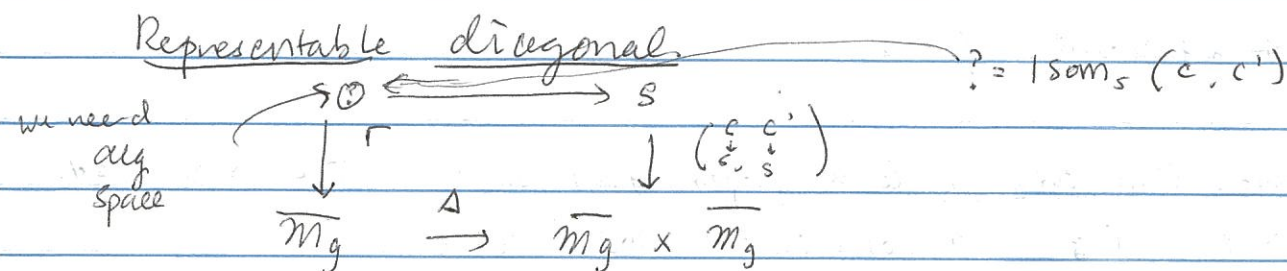 Representable diagonal
? = Isom_S (C, C')
? → S
we need
alg
space
(C C'
↓ ↓
S, S)
\overline{M_g} Δ → \overline{M_g} × \overline{M_g}